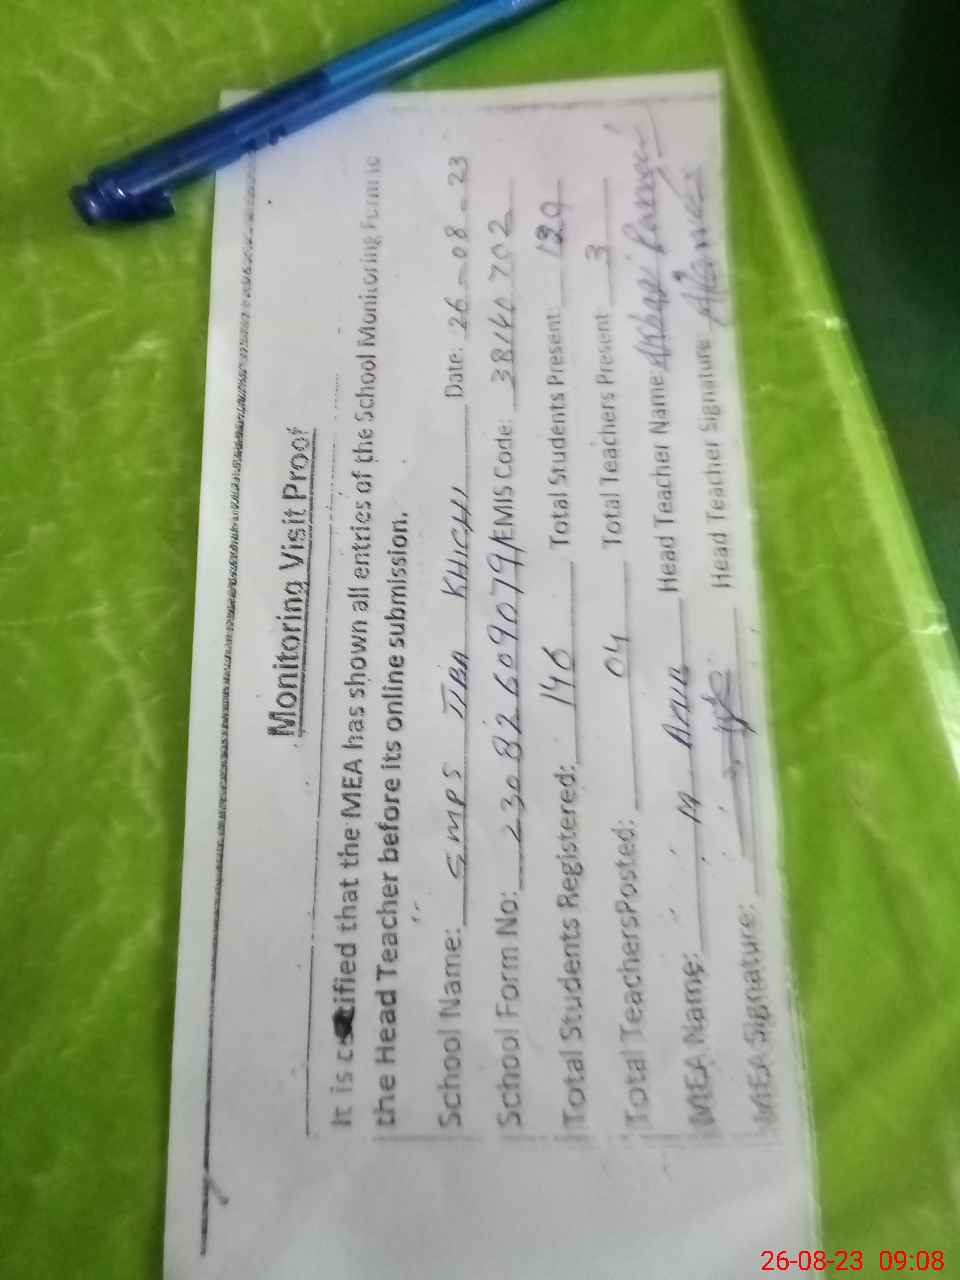 Monitoring Visit Proof
It is certified that the MEA has shown all entries of the School Monitoring Form to
the Head Teacher before its online submission.
School Name: GMPS TIBA KHICHI Date: 26-08-23
School Form No: 23082609079/ EMIS Code: 38140702
Total Students Registered: 146 Total Students Present: 129
Total TeachersPosted: 04 Total Teachers Present 3
MEA Name: M. Head Teacher Name:
MEA Signature: Head Teacher Signature
26-08-23 09:08